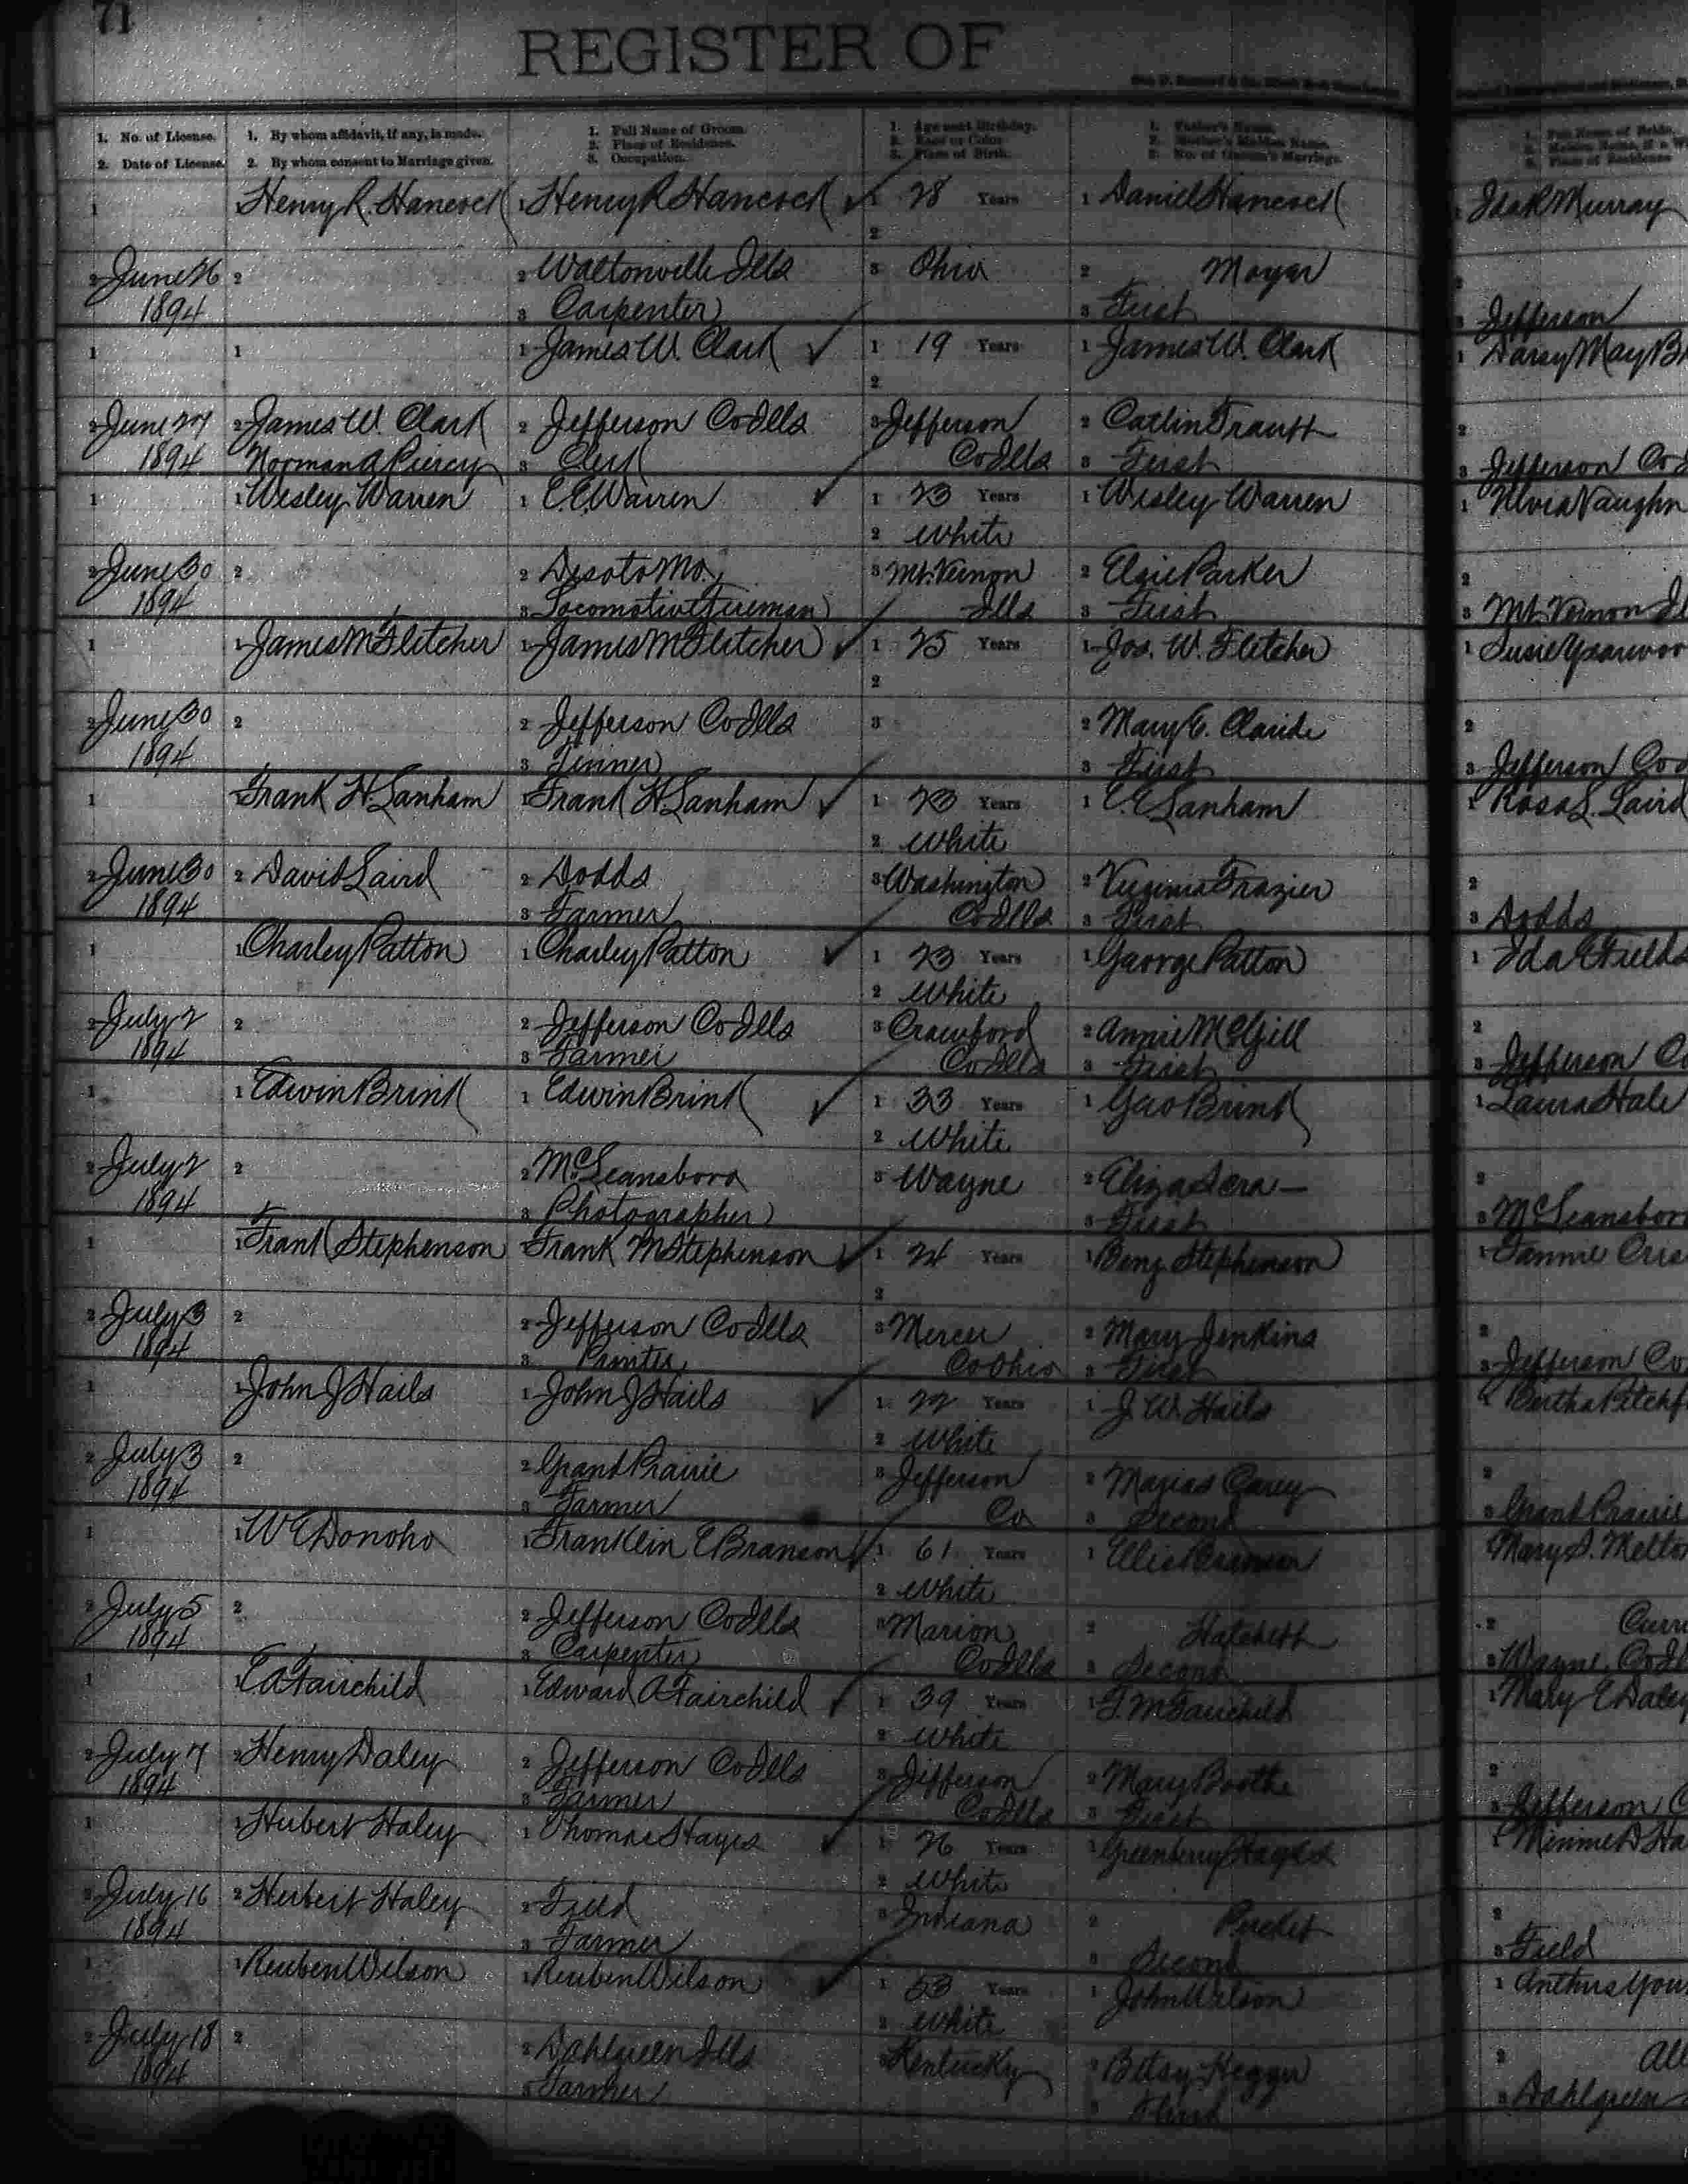 71
REGISTER OF
1. No. of License.
2. Date of License.
1. By whom affidavit, if any, is made.
2. By whom consent to Marriage given.
1. Full Name of Groom.
2. Place of Residence.
3. Occupation.
1. Age next Birthday.
2. Race or Color.
3. Place of Birth.
1. Father's Name.
2. Mother's Maiden Name.
3. No. of Groom's Marriage.
1. Full Name of Bride.
3. Place of Residence
1 Henry R. Hancock 1 Henry R Hancock 1 28 Years 1 Daniel Hancock Ida R Murray
2
2 June 26 2 2 Waltonville Ills 3 Ohio 2 Moyer 2
1894 3 Carpenter 3 First 3 Jefferson
1 1 1 James W. Clark 1 19 Years 1 James W. Clark 1 Darsy May
2
2 June 27 2 James W. Clark 2 Jefferson Co Ills 3 Jefferson 2 Catlin Trautt 2
1894 Norman A Piercy 3 Clerk Co Ills 3 First 3 Jefferson Co
1 1 Wesley Warren 1 C. E. Warren 1 23 Years 1 Wesley Warren 1 Vaughn
2 White
2 June 30 2 2 Desoto Mo. 3 Mt. Vernon 2 Elsie Parker 2
1894 3 Locomotive fireman Ills 3 First 3 Mt. Vernon
1 1 James M Fletcher 1 James M Fletcher 1 25 Years 1 Jos. W. Fletcher 1 Susie
2
2 June 30 2 2 Jefferson Co Ills 3 2 Mary E. Claride 2
1894 3 Tinner 3 First 3 Jefferson Co
1 1 Frank H Lanham 1 Frank H. Lanham 1 23 Years 1 C. E Lanham 1 Rosa L. Laird
2 White
2 June 30 2 David Laird 2 Dodds 3 Washington 2 Virginia Frazier 2
1894 3 Farmer Co Ills 3 First 3 Dodds
1 1 Charley Patton 1 Charley Patton 1 23 Years 1 George Patton 1 Ida E Fields
2 White
2 July 2 2 2 Jefferson Co Ills 3 Crawford 2 Annie McGill 2
1894 3 Farmer Co Ills 3 First 3 Jefferson Co
1 1 Edwin Brink 1 Edwin Brink 1 33 Years 1 Geo Brink 1 Laura Hale
2 White
2 July 2 2 2 McLeansboro 3 Wayne 2 Eliza 2
1894 3 Photographer 3 First 3 McLeansboro
1 1 Frank Stephenson Frank M Stephenson 1 24 Years 1 Benj Stephenson 1 Fannie
2
2 July 3 2 2 Jefferson Co Ills 3 Mercer 2 Mary Jenkins 2
1894 3 Co Ohio 3 First 3 Jefferson Co
1 1 John J Hails 1 John J Hails 1 22 Years 1 J. W. Hails Bertha
2 White
2 July 3 2 2 Grand Prairie 3 Jefferson 2 Carey 2
1894 3 Farmer Co 3 Second 3 Grand Prairie
1 1 W E Donoho 1 Franklin E Branson 1 61 Years 1 Ellis Branson Mary S. Melton
2 White
2 July 5 2 2 Jefferson Co Ills 3 Marion 2 Hatchett 2
1894 3 Carpenter Co Ills 3 Second 3 Wayne Co
1 1 E. A Fairchild 1 Edward A Fairchild 1 39 Years 1 Fairchild 1 Mary E Daley
2 White
2 July 7 2 Henry Daley 2 Jefferson Co Ills 3 Jefferson 2 Mary Boothe 2
1894 3 Farmer Co Ills 3 First 3 Jefferson
1 1 Herbert Haley 1 Thomas Hayes 1 26 Years 1 Greenberry Hayes 1 Minnie
2 White
2 July 16 2 Herbert Haley 2 Field 3 Indiana 2 2
1894 3 Farmer 3 Second 3 Field
1 1 Reuben Wilson 1 Reuben Wilson 1 53 Years 1 John Wilson 1
2 White
2 July 18 2 2 Dahlgreen Ills 3 Kentucky 2 Betsy 2
1894 3 Farmer 3 Third 3 Dahlgreen